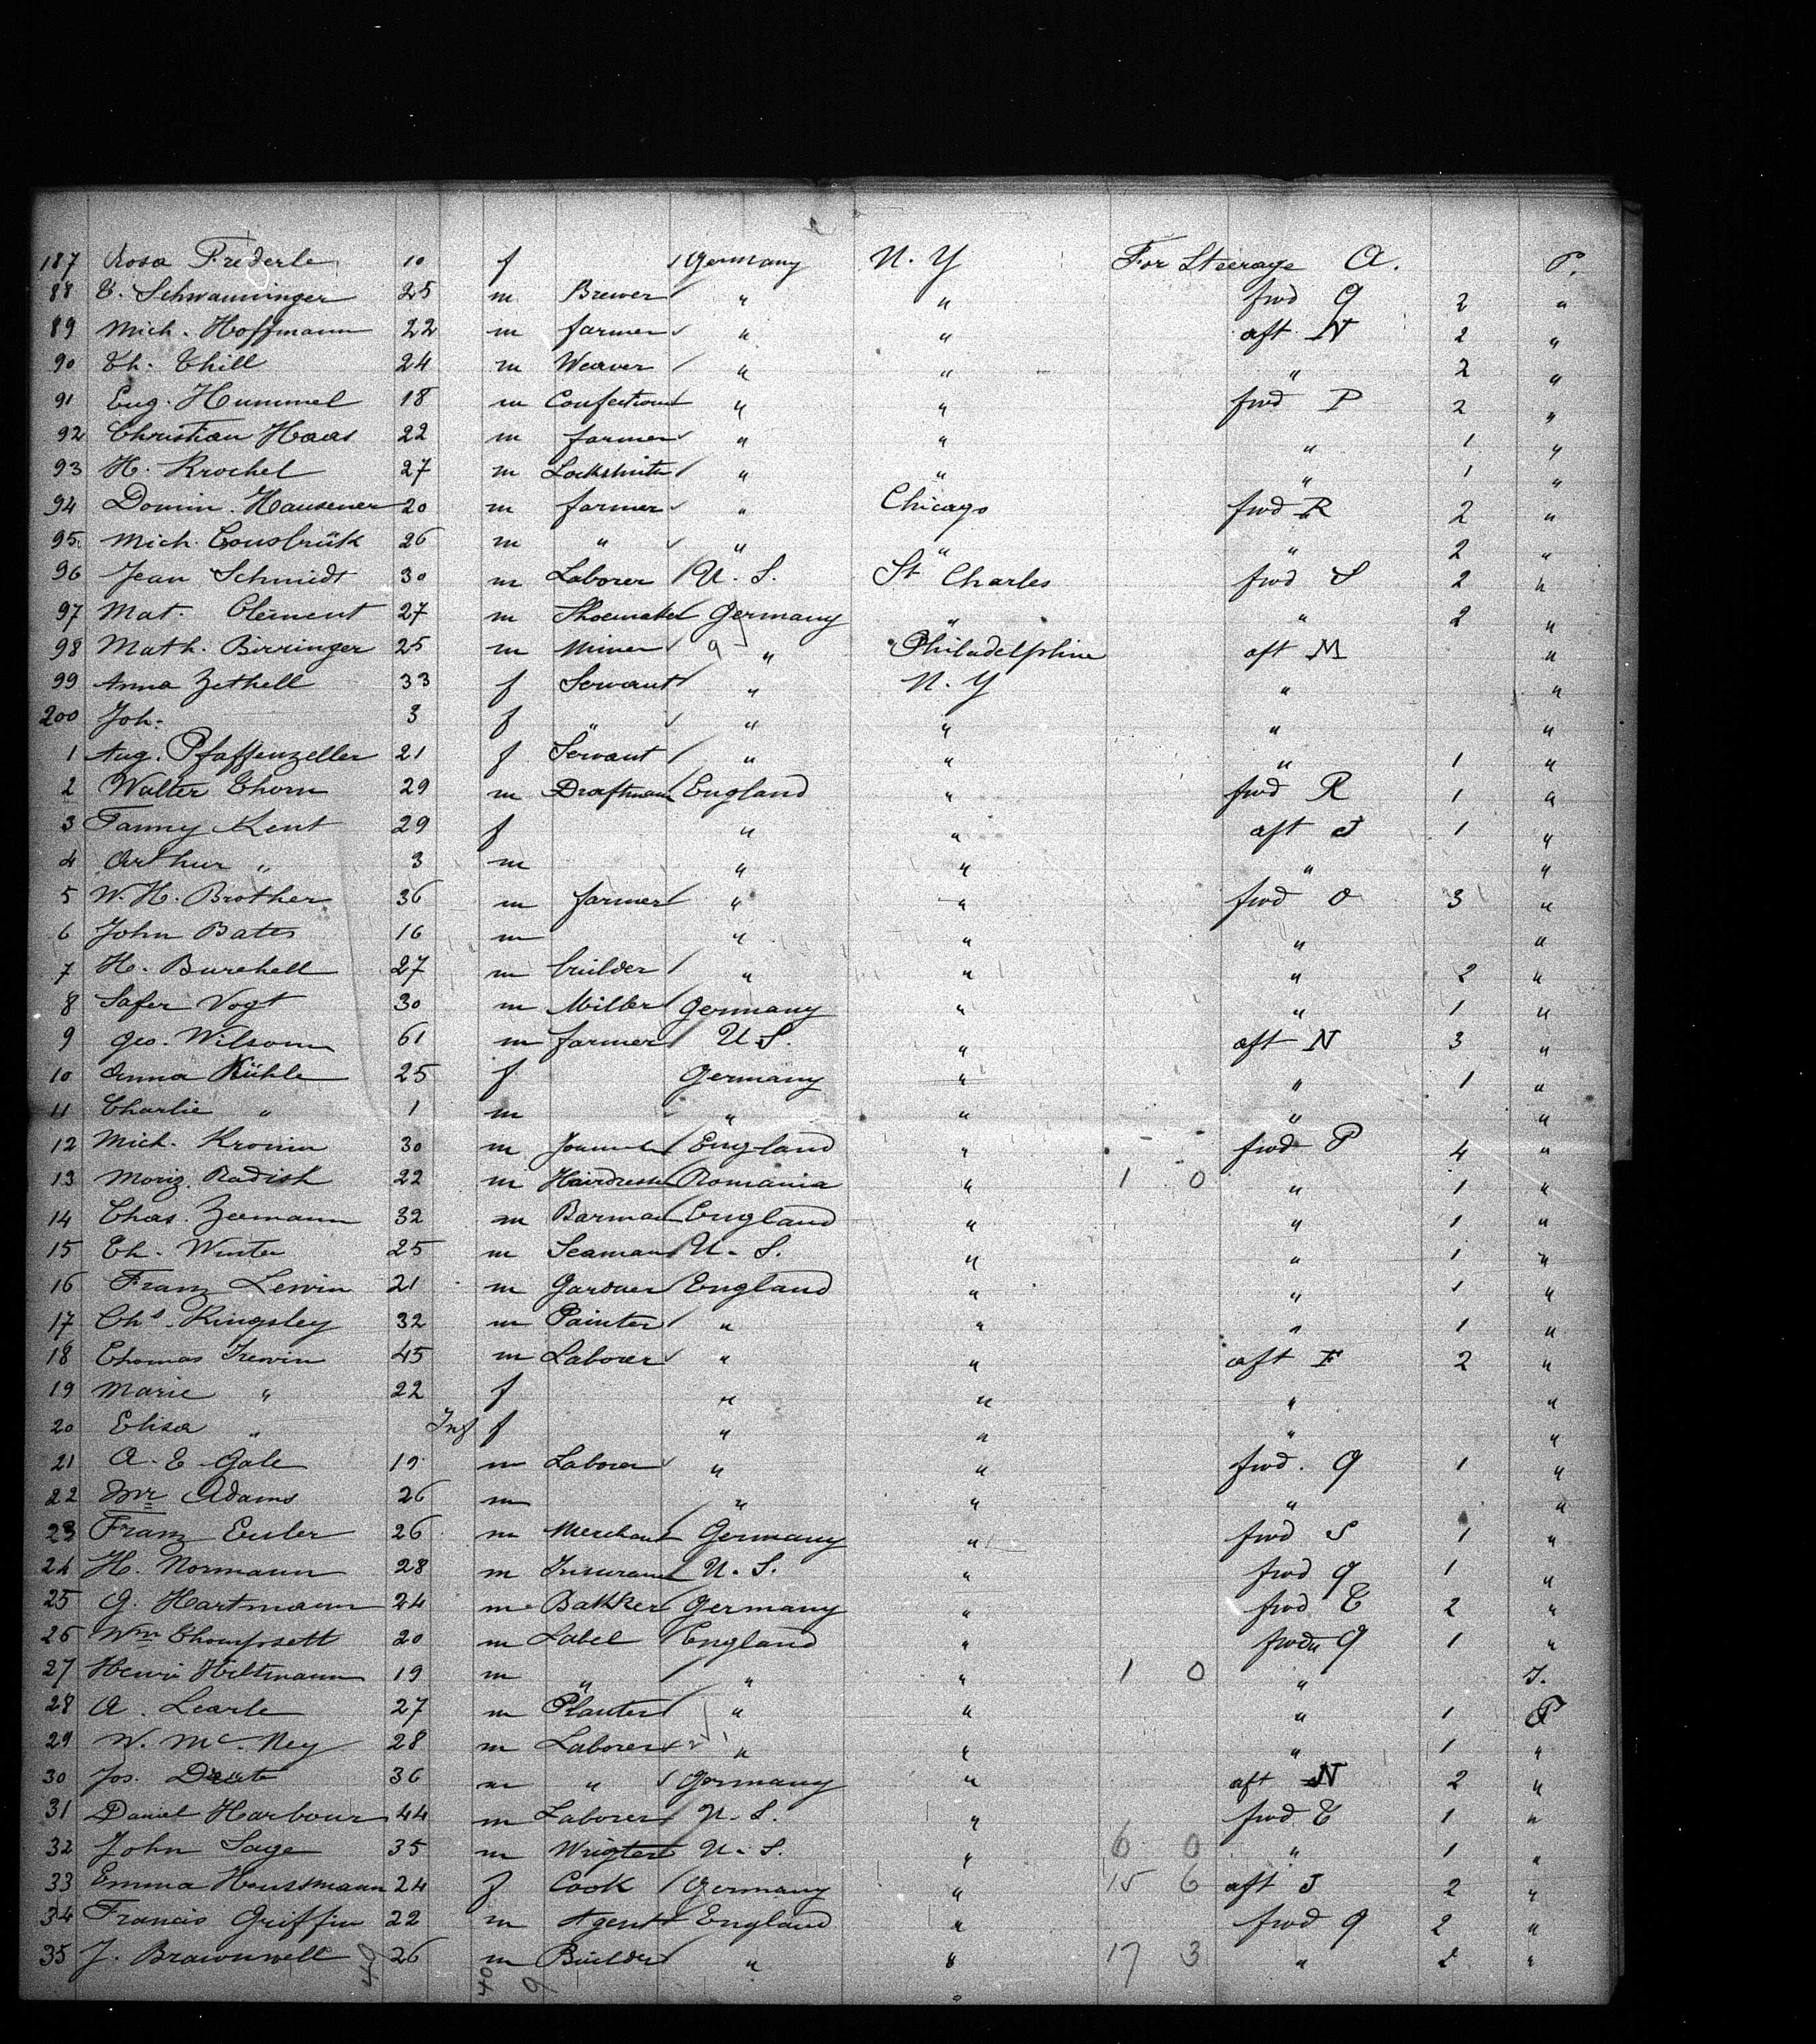 187 Rosa Frederle 10 f / Germany N. Y For Steerage A. P.
88 E. Schwanninger 25 m Brewer / " " fwd Q 2 "
89 Mich. Hoffmann 22 m farmer " " aft N 2 "
90 Th. Thill 24 m Weaver / " " " 2 "
91 Eug. Hummel 18 m " " fwd P 2 "
92 Christian Haas 22 m farmer " " " 1 "
93 H. Krochel 27 m Locksmith / " " " 1 "
94 Domin. Hausener 20 m farmer " Chicago fwd R 2 "
95 Mich. 26 m " " " " 2 "
96 Jean Schmidt 30 m Laborer / U. S. St Charles fwd S 2 "
97 Mat. Clement 27 m Shoemaker Germany " " 2 "
98 Math. Birringer 25 m Miner / " Philadelphia aft M "
99 Anna Zethell 33 f Servant / " N. Y " "
200 Joh. 3 f " " " " "
1 Aug. Pfaffenzeller 21 f Servant / " " " 1 "
2 Walter Thorn 29 m Draftman England " fwd R 1 "
3 Fanny Kent 29 f " " aft J 1 "
4 Arthur " 3 m " " " "
5 W. H. Brother 36 m farmer / " " fwd O 3 "
6 John Bates 16 m " " " "
7 H. Burchell 27 m builder / " " " 2 "
8 Safer Vogt 30 m Miller / Germany " " 1 "
9 Geo. Wilson 61 m farmer / U S. " aft N 3 "
10 Anna Kühle 25 f Germany " " 1 "
11 Charlie " 1 m " " " "
12 Mich. Kronin 30 m England " fwd P 4 "
13 Moriz. Radish 22 m Hairdresser Romania " 1 0 " 1 "
14 Chas. Zeemann 32 m Barman England " " 1 "
15 Th. Winter 25 m Seaman U. S. " " 1 "
16 Franz Lewin 21 m Gardner / England " " 1 "
17 Chs. Kingsley 32 m Painter / " " " 1 "
18 Thomas Irewin 45 m Laborer " " aft F 2 "
19 Marie " 22 f " " " "
20 Elisa " Inf f " " " "
21 A. E. Gale 19 m Laborer " " fwd. Q 1 "
22 Mr Adams 26 m " " " "
23 Franz Euler 26 m Merchant Germany " fwd S 1 "
24 H. Normann 28 m Insurance U. S. " fwd Q 1 "
25 G. Hartmann 24 m Bakker / Germany " fwd T 2 "
26 Wm Thompsett 20 m Label / England " fwd Q 1 "
27 Henri Hiltmann 19 m " " " 1 0 "
28 A. Learle 27 m Planter / " " " 1 P
29 W. Mc. Ney 28 m Laborer " " " 1 "
30 Jos. 36 m " Germany " aft N 2 "
31 Daniel Harbour 44 m Laborer / U. S. " fwd T 1 "
32 John Sage 35 m U. S. " 6 0 " 1 "
33 Emma Houssmann 24 f Cook / Germany " 15 6 aft J 2 "
34 Francis Griffin 22 m Agent England " fwd Q 2 "
35 J. Brawnwell 26 m Builder / " " 17 3 " 2 "